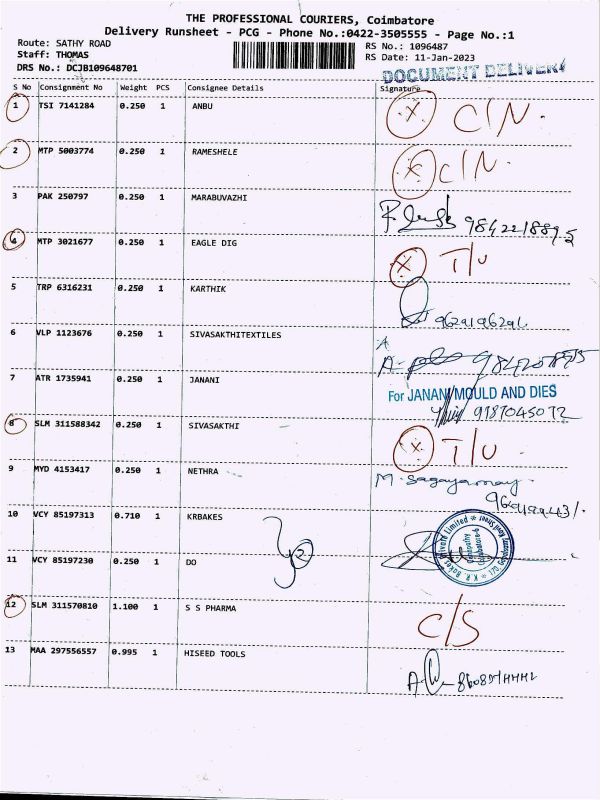 THE PROFESSIONAL COURIERS, Coimbatore
Delivery Runsheet - PCG - Phone No.:0422-3505555 - Page No.:1
Route: SATHY ROAD RS No.: 1096487
Staff: THOMAS RS Date: 11-Jan-2023
DRS No.: DCJB109648701
DOCUMENT DELIVERY
S No Consignment No Weight PCS Consignee Details Signature
1 TSI 7141284 0.250 1 ANBU X C/N.
2 MTP 5003774 0.250 1 RAMESHELE X C/N.
3 PAK 250797 0.250 1 MARABUVAZHI
9842218895
4 MTP 3021677 0.250 1 EAGLE DIG X T/U
5 TRP 6316231 0.250 1 KARTHIK
6 VLP 1123676 0.250 1 SIVASAKTHITEXTILES
7 ATR 1735941 0.250 1 JANANI
For JANANI MOULD AND DIES
9187045072
8 SLM 311588342 0.250 1 SIVASAKTHI X T/U
9 MYD 4153417 0.250 1 NETHRA
M. Sagayamary
10 VCY 85197313 0.710 1 KRBAKES
11 VCY 85197230 0.250 1 DO
2
12 SLM 311570810 1.100 1 S S PHARMA C/S
13 MAA 297556557 0.995 1 HISEED TOOLS